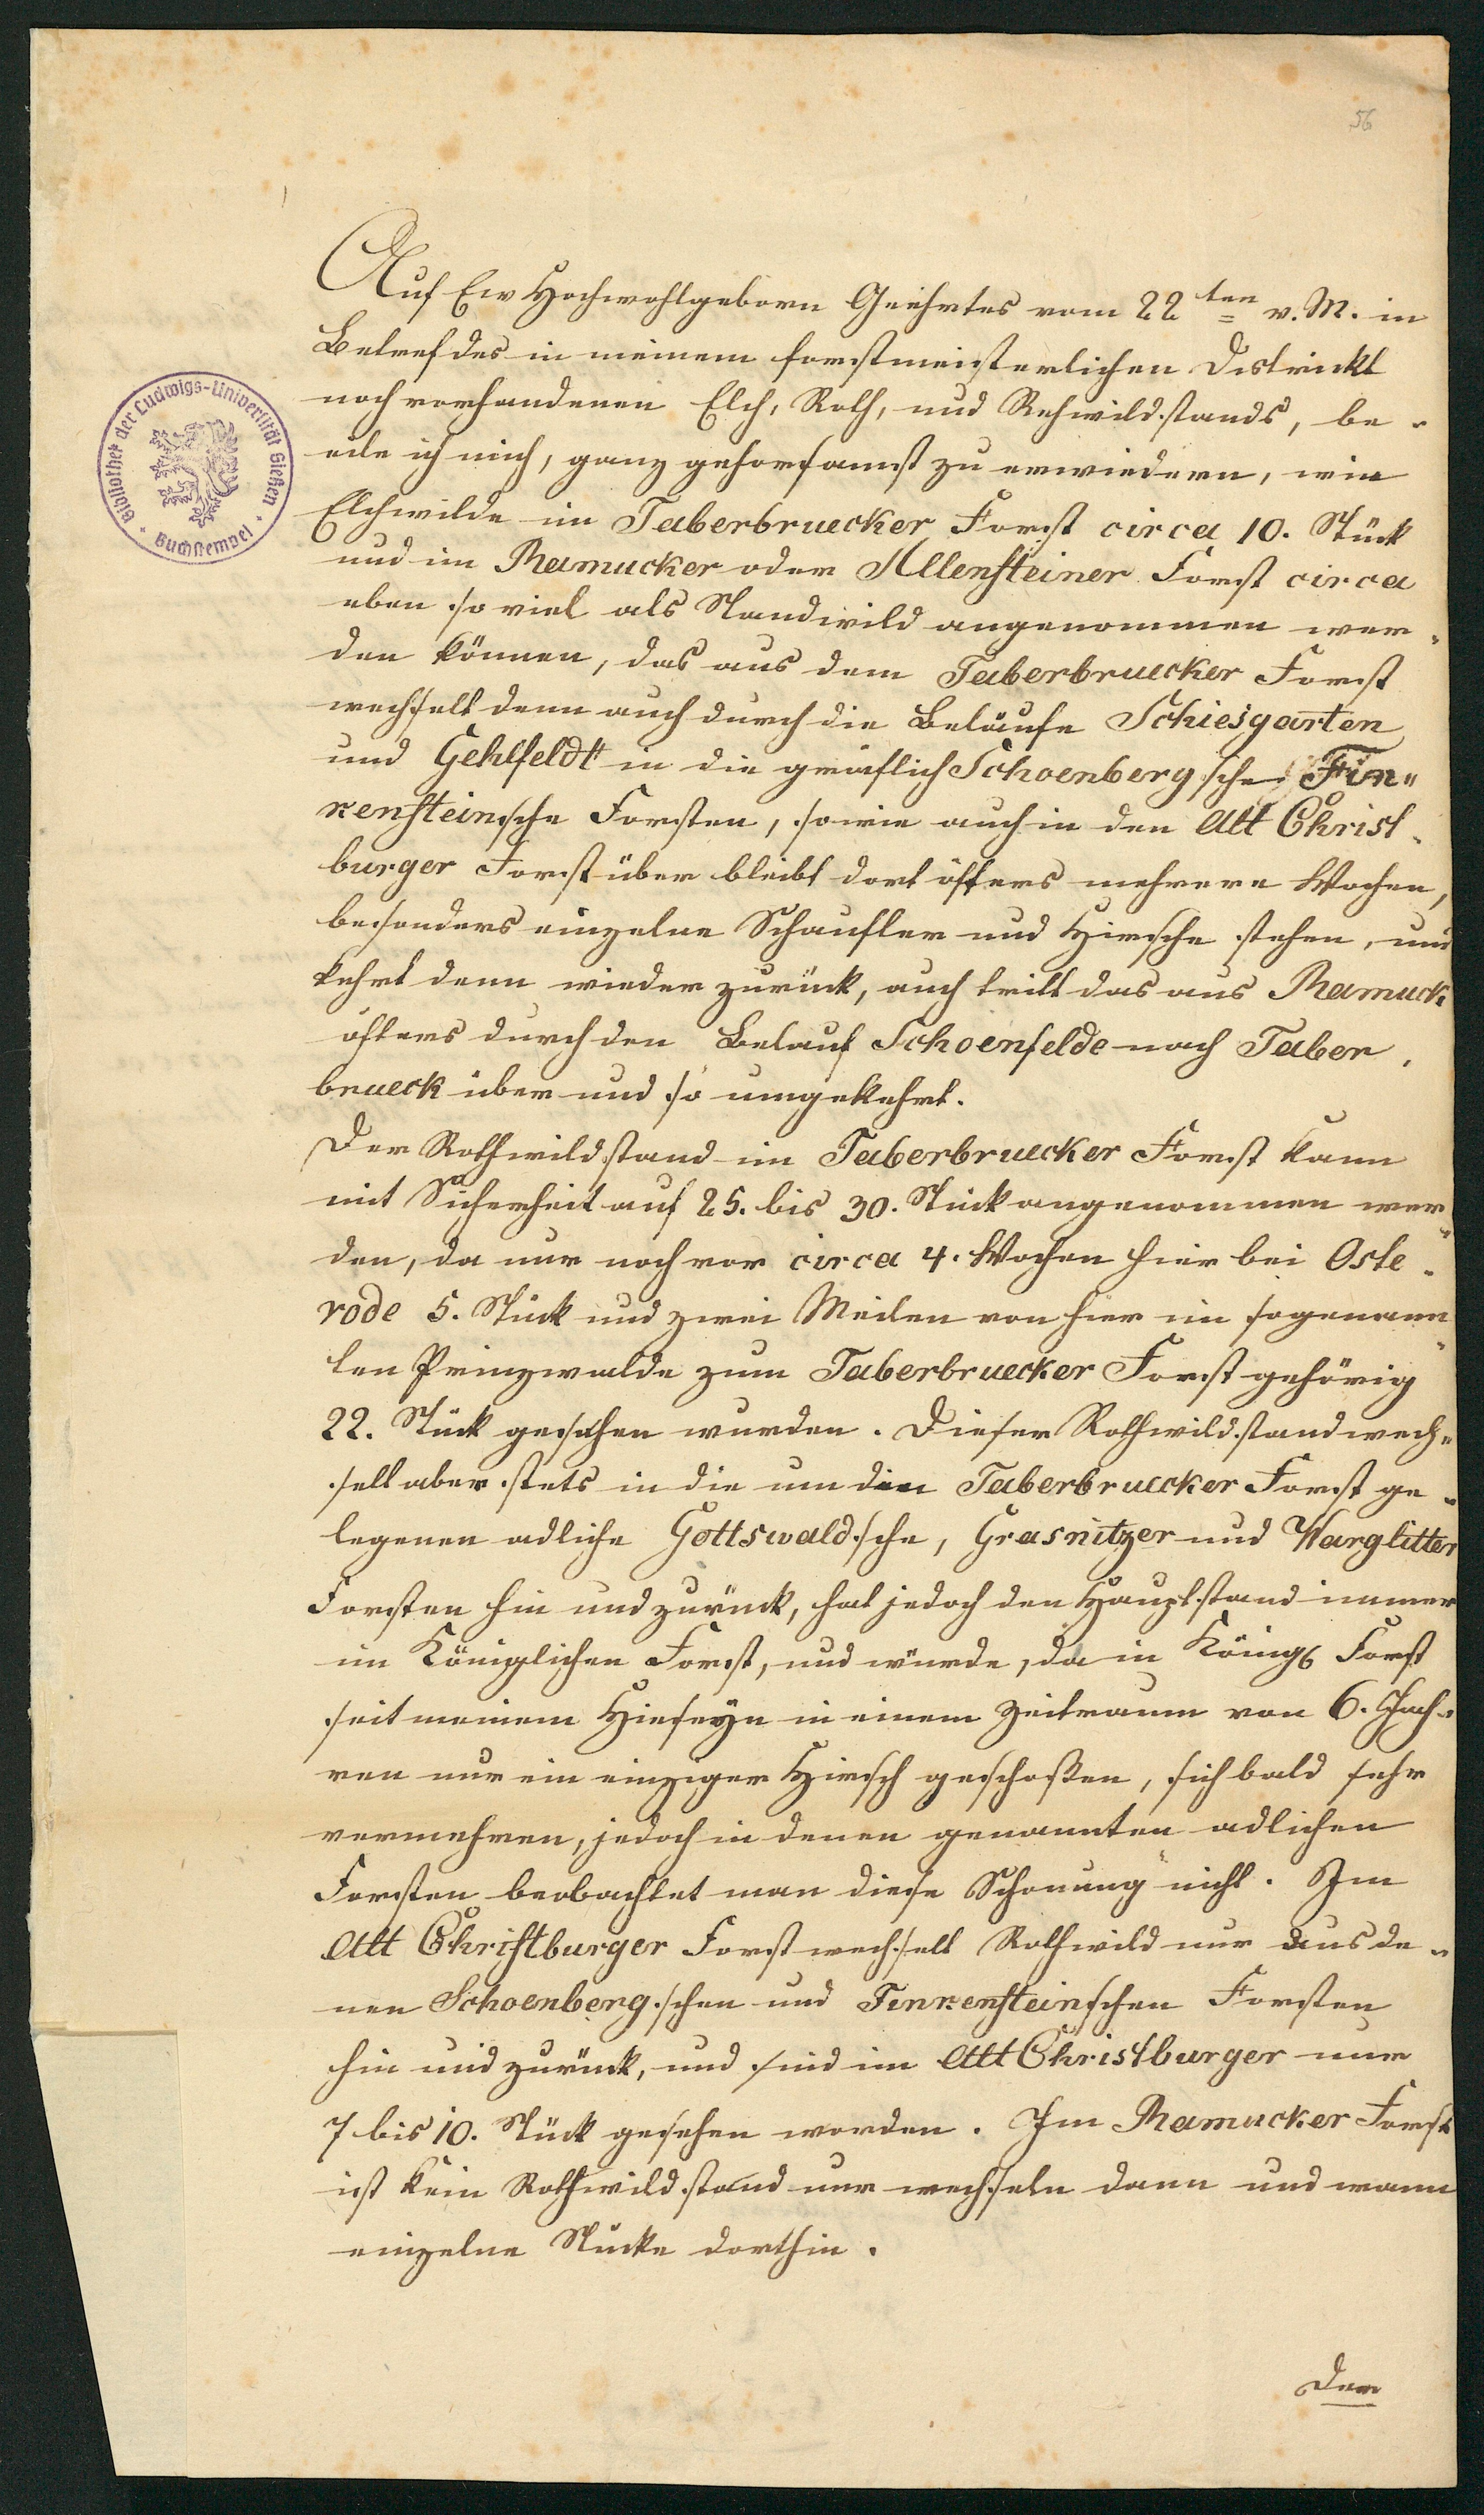 56
Auf Ew Hochwohlgeborn Geehrtes vom 22ten v. M. in
Betref des in meinem forstmeisterlichen Districkt
noch vorhandenen Elch, Roth, und Rehwildstands, be-
eile ich mich, ganz gehorsamst zu erwiedern, wie
Elchwilde im Taberbruecker Forst circa 10. Stück
und im Ramucker oder Allensteiner Forst circa
eben so viel als Standwild angenommen wer-
den können, das aus dem Taberbruecker Forst
wechselt denn auch durch die Beläufe Schiesgarten
und Gehlfeldt in die gräflich Schoenbergsche Fin„
kensteinsche Forsten, sowie auch in den Alt Christ-
burger Forst über bleibt dort öfters mehrere Wochen,
besonders einzelne Schaufler und Hirsche stehen, und
kehrt denn wieder zurück, auch tritt das aus Ramuck
öfters durch den Belauf Schoenfelde nach Taber-
brueck über und so umgekehrt.
Der Rothwildstand im Taberbruecker Forst kann
mit Sicherheit auf 25. bis 30. Stück angenommen wer„
den, da nur noch vor circa 4. Wochen hier bei Oste-
rode 5. Stück und zwei Meilen von hier im sogenann„
ten Prinzwalde zum Taberbruecker Forst gehörig
22. Stück gesehen wurden. Dieser Rothwildstand wech„
selt aber stets in die um den Taberbruecker Forst ge-
legenen adliche Gottswaldsche, Grasnitzer und Warglitter
Forsten hin und zurück, hat jedoch den Hauptstand immer
im Königlichen Forst, und würde, da in Königl Forst
seit meinem Hieseyn in einem Zeitraum von 6. Jah„
ren nur ein einziger Hirsch geschoßen, sich bald sehr
vermehren, jedoch in denen genannten adlichen
Forsten beobachtet man diese Schonung nicht. Im
Alt Christburger Forst wechselt Rothwild nur aus de„
nen Schoenbergschen und Finkensteinschen Forsten
hin und zurück, und sind im Alt Christburger nur
7 bis 10. Stück gesehen worden. Im Ramucker Forst
ist kein Rothwildstand nur wechseln dann und wann
einzelne Stücke dorthin.
Der
Bibliothek der Ludwigs-Universität Gießen
Buchstempel